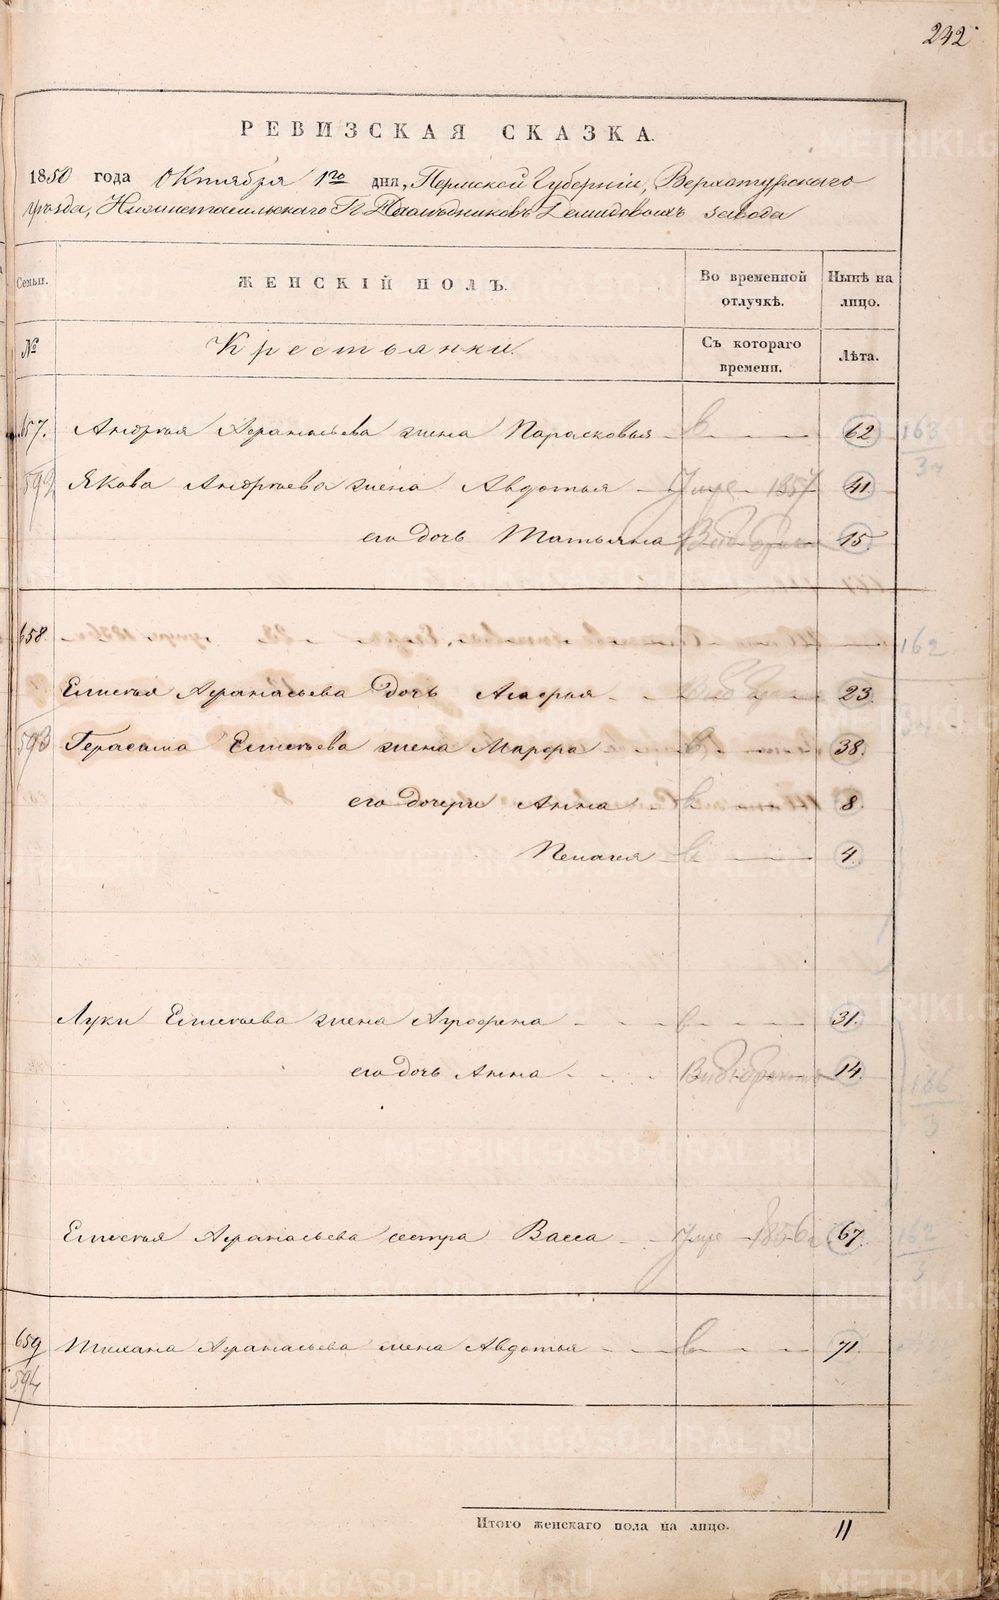 242
РЕВИЗСКАЯ СКАЗКА.
1850 года Октября 1го дня, Пермской Губерніи, Верхотурскаго
уѣзда, Нижнетагильскаго Г. Наслѣдниковъ Демидовыхъ завода
Семьи. ЖЕНСКІЙ ПОЛЪ. Во временной отлучкѣ. Нынѣ на лицо.
№ Крестьянки. Съ котораго времени. Лѣта.
657. Андрея Афанасьева жена Парасковья в 62 163
592 Якова Андреева жена Авдотья Умре 1857 41 34
его дочь Татьяна 15
658. 162
Елисея Афанасьева дочь 23
593 Герасима Елисеева жена Марфа в 38.
его дочери Анна в 8.
Пелагея в 4.
Луки Елисеева жена Агрофена в 31. 166
его дочь Анна 14. 3
Елисея Афанасьева сестра Васса Умре 1856 67. 162
3
659 Афанасьева жена Авдотья в 71.
594
Итого женскаго пола на лицо. 11
METRIKI.GASO-URAL.RU